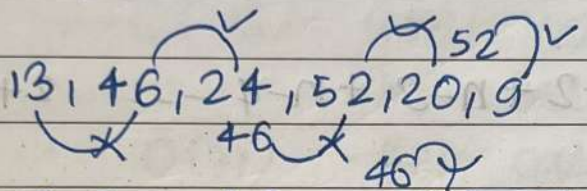 52
13, 46, 24, 52, 20, 9
46
46